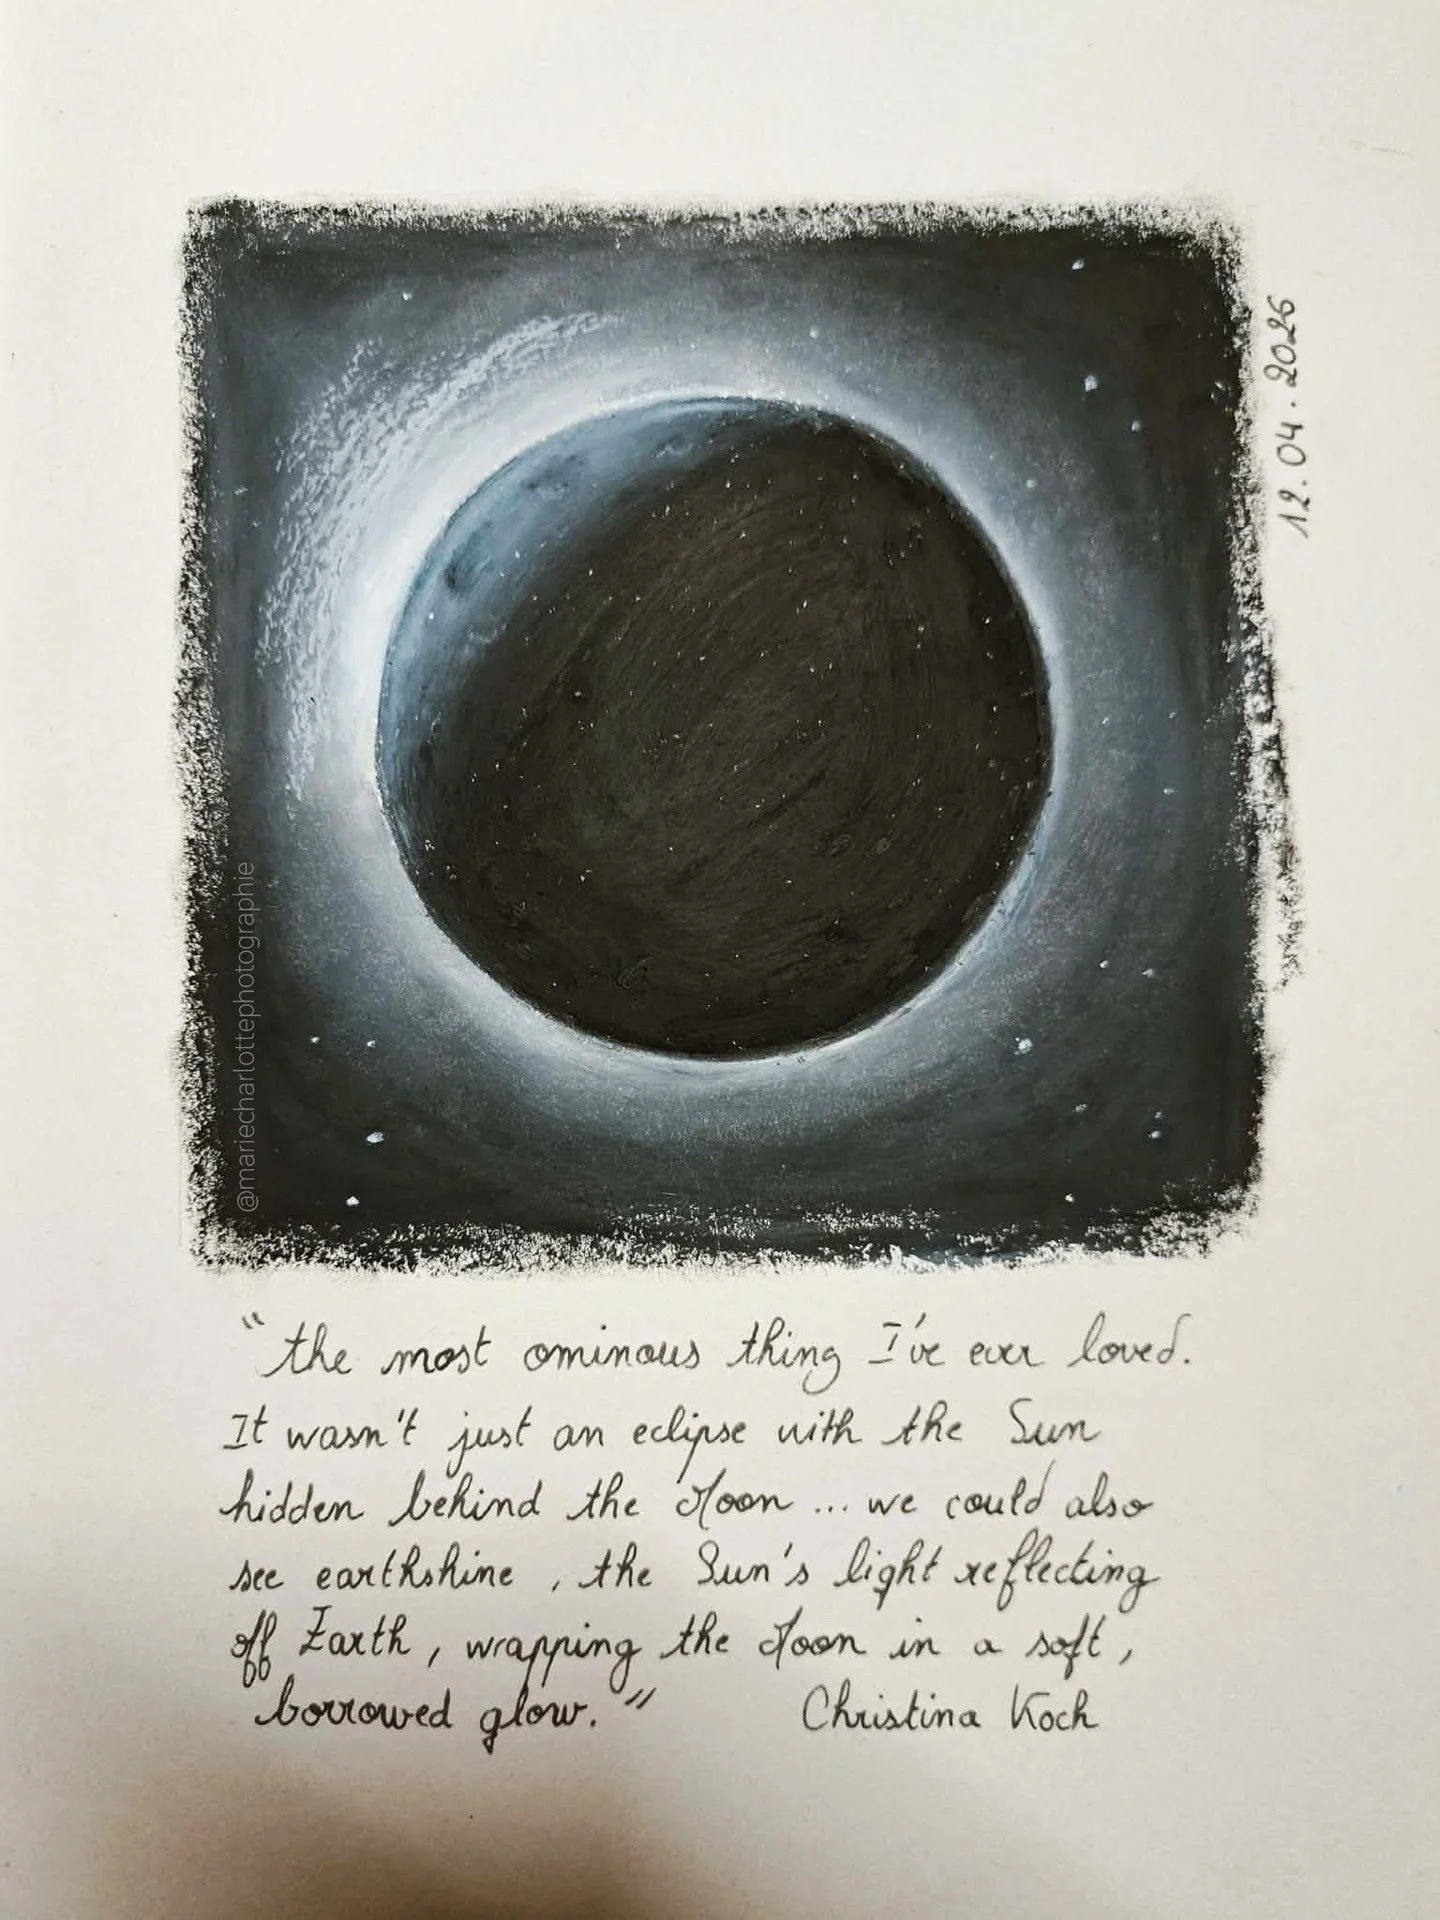 12.04.2026
@mariecharlottephotographie
"the most ominous thing I've ever loved.
It wasn't just an eclipse with the Sun
hidden behind the Moon ... we could also
see earthshine, the Sun's light reflecting
off Earth, wrapping the Moon in a soft,
borrowed glow."
Christina Koch